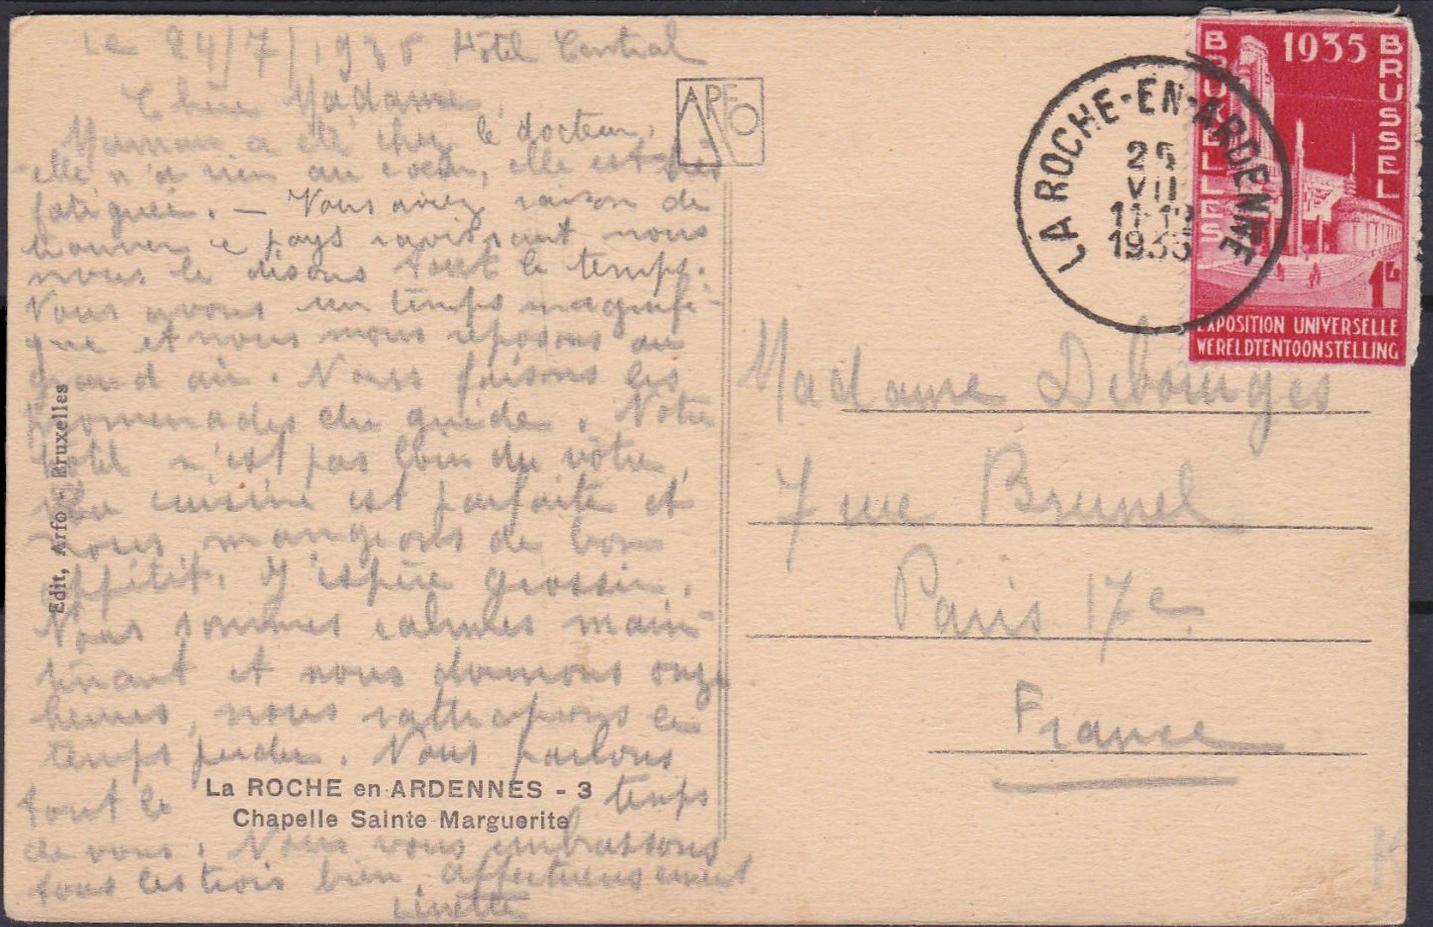 Le 24/7/1935 Hôtel Central
Chère Madame,
Maman a été chez le docteur,
elle n'a rien au coeur, elle est très
fatiguée. — Vous aviez raison de
trouver ce pays ravissant nous
nous le disons tout le temps.
Nous avons un temps magnifi-
que et nous nous reposons au
grand air. Nous faisons les
promenades du guide. Notre
hôtel n'est pas loin du vôtre,
la cuisine est parfaite et
nous mangeons de bon
appétit. J'espère grossir.
Nous sommes calmes main-
tenant et nous dormons onze
heures, nous rattrapons le
temps perdu. Nous parlons
tout le temps
de vous. Nous vous embrassons
tous les trois bien affectueusement
Linette
La ROCHE en ARDENNES - 3
Chapelle Sainte Marguerite
Edit, Arfo - Bruxelles
ARFO
LA ROCHE-EN-ARDENNE
25
VII
11-12
1935
1935
BRUXELLES
BRUSSEL
1
EXPOSITION UNIVERSELLE
WERELDTENTOONSTELLING
Madame
7 rue Brunel
Paris 17e.
France